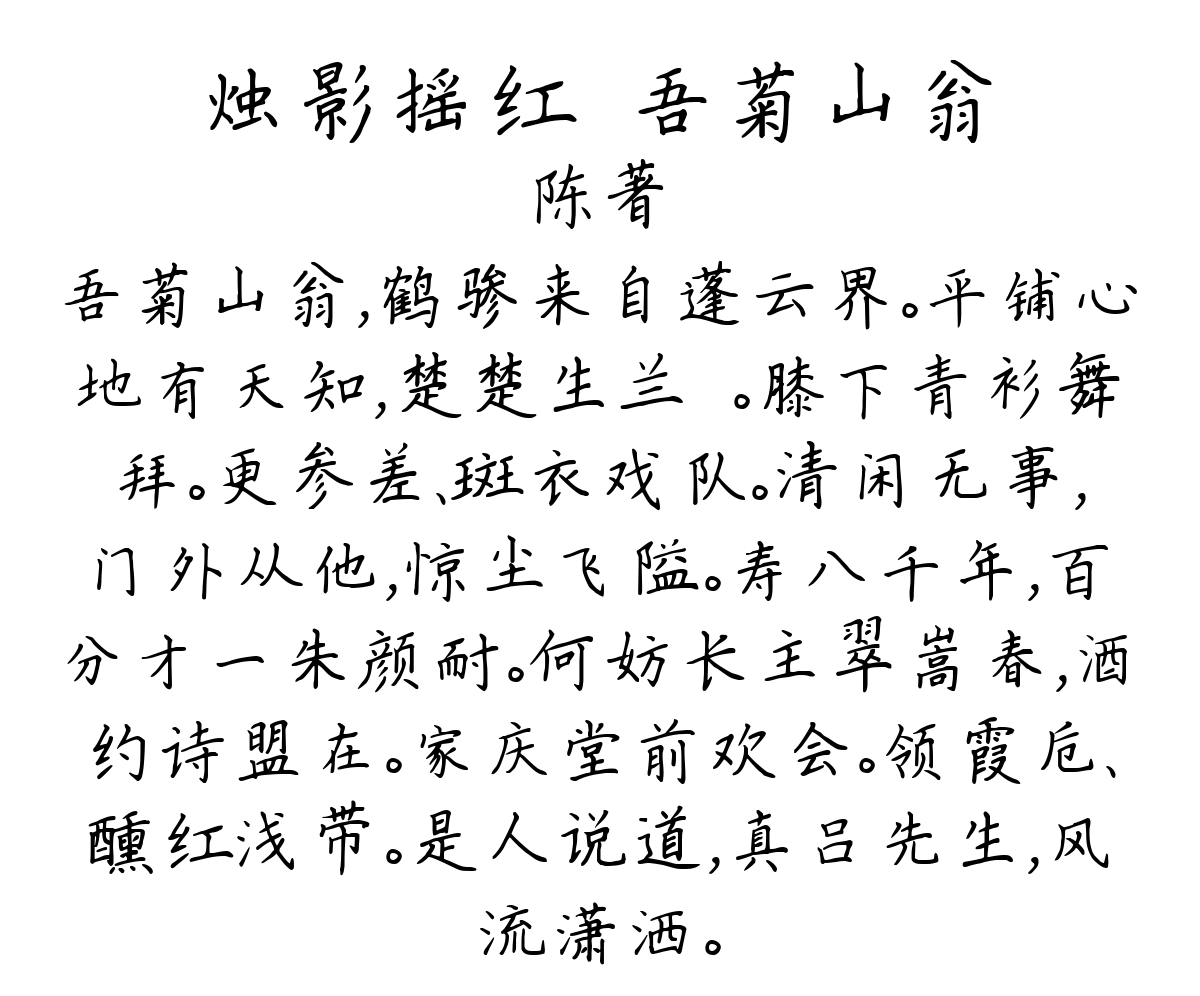 烛影摇红 吾菊山翁
陈著
吾菊山翁,鹤骖来自蓬云界。平铺心
地有天知,楚楚生兰 。膝下青衫舞
拜。更参差、斑衣戏队。清闲无事,
门外从他,惊尘飞隘。寿八千年,百
分才一朱颜耐。何妨长主翠嵩春,酒
约诗盟在。家庆堂前欢会。领霞卮、
醺红浅带。是人说道,真吕先生,风
流潇洒。